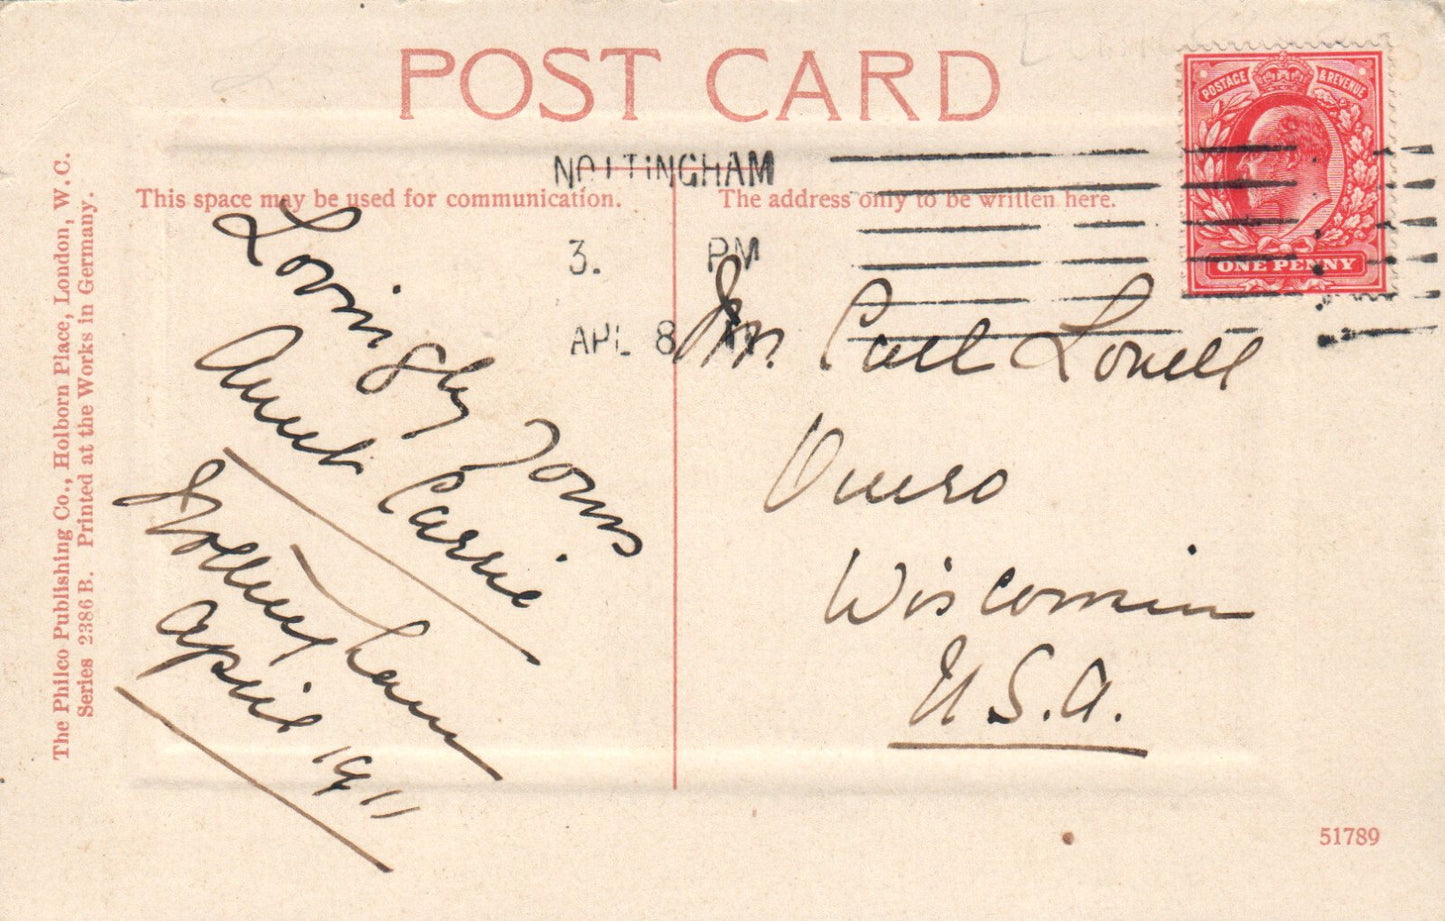 POST CARD
POSTAGE & REVENUE
ONE PENNY
NOTTINGHAM
3. PM
APL 8
This space may be used for communication.
The address only to be written here.
Lovingly Yours
Aunt Carrie
Nottingham
April 1911
Carl Lowell
Omro
Wisconsin
U.S.A.
The Philco Publishing Co., Holborn Place, London, W.C.
Series 2386 B. Printed at the Works in Germany.
51789